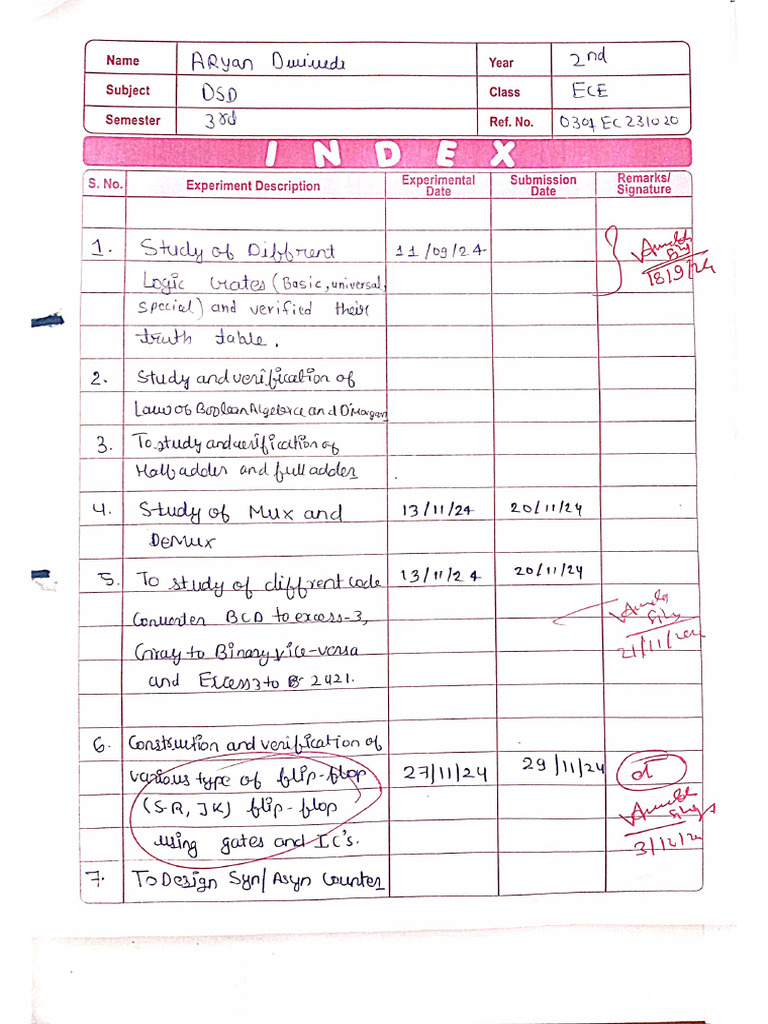 Name ARyan Dwivedi Year 2nd
Subject DSD Class ECE
Semester 3rd Ref. No. 0307 EC 231020
INDEX
S. No. Experiment Description Experimental Date Submission Date Remarks/ Signature
1. Study of Diffrent 11/09/24
Logic Gates (Basic, universal,
special) and verified their 18/9/24
truth table.
2. Study and verification of
Law of Boolean Algebra and D'Morgan
3. To study and verification of
Half adder and full adder
4. Study of Mux and 13/11/24 20/11/24
DeMux
5. To study of diffrent code 13/11/24 20/11/24
Converter BCD to excess-3,
Gray to Binary vice-versa 21/11/24
and Excess3 to 2421.
6. Construction and verification of
various type of flip-flop 27/11/24 29/11/24
(S-R, JK) flip-flop
using gates and I.C's. 3/12/24
7. To Design Syn/Asyn Counter